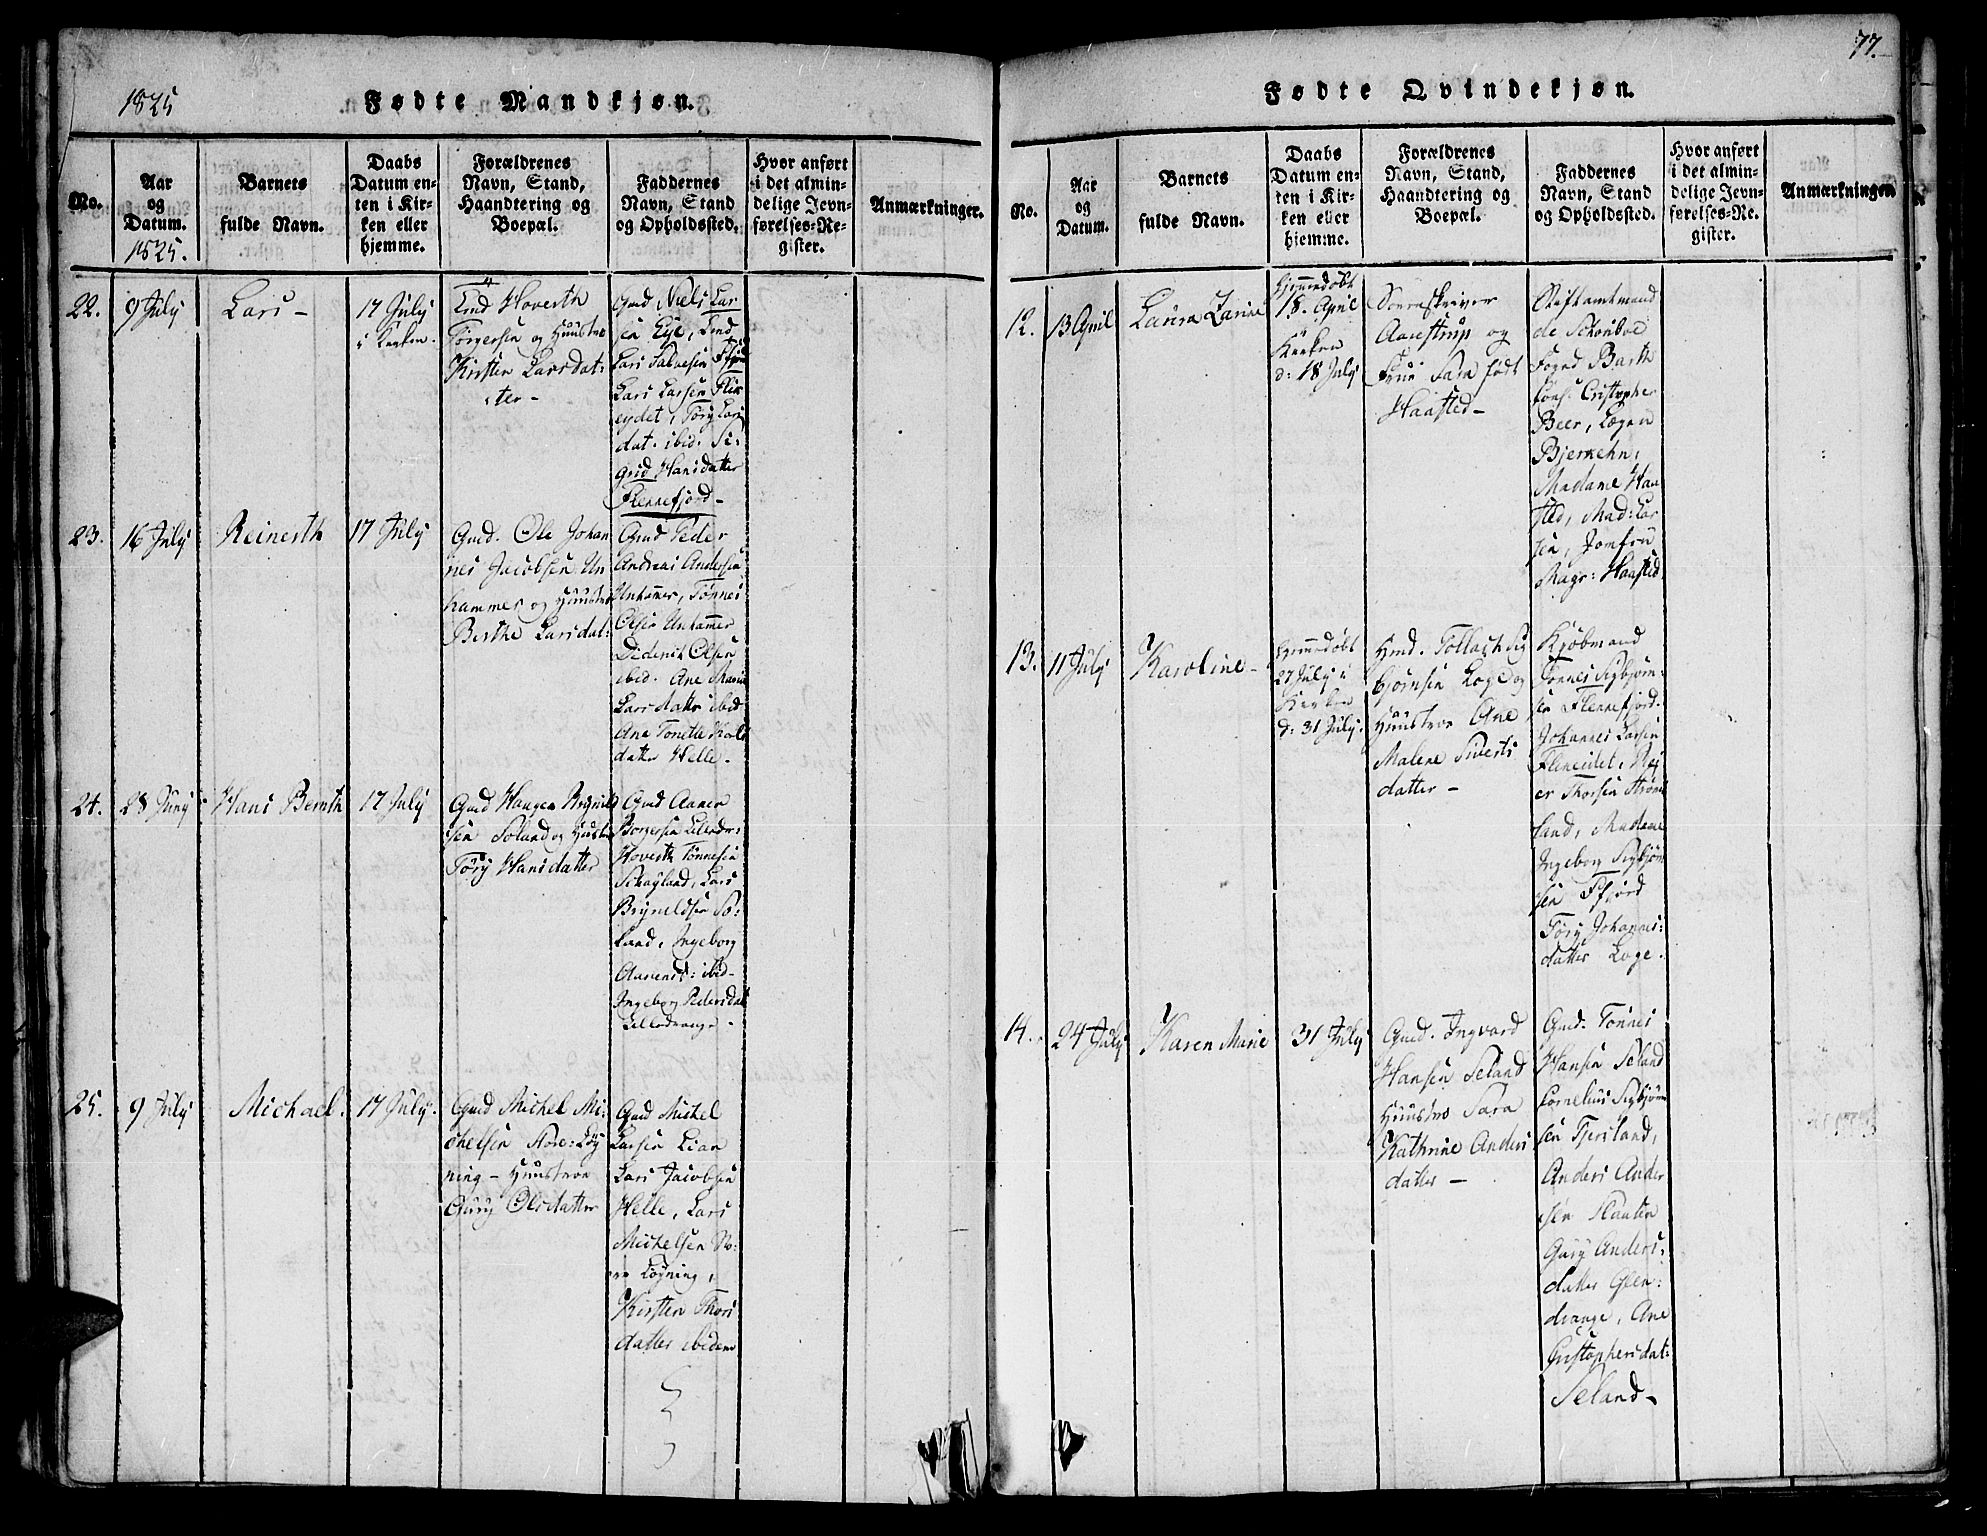 1825
Fødte Mandkjøn.
No.
Aar
og
Datum.
1825.
Barnets
fulde Navn.
Daabs
Datum en-
ten i Kir-
ken eller
hjemme.
Forældrenes
Navn, Stand,
Haandtering og
Boepæl.
Faddernes
Navn, Stand
og Opholdssted.
Hvor anført
i det almin-
delige Jevn-
førelses-Re-
gister.
Anmærkninger.
22.
9 July
Lars -
17 July
i Kirken.
Hoverth
Tørgersen og Huustroe
Kirsten Larsdat:
ter -
Gmd Niels Lar
sen Eye,
Lars Salvesen
Lars Larsen Flik
eydet, Tøry Lars
dat. ibid: Si:
grid Hansdatter
Flekkefjord -
23.
16 July
Reinerth
17 July
Gmd. Ole Johan
nes Jacobsen Un
hammer og Huustroe
Berthe Larsdat:
Gmd Peder
Andreas Andersen
Unhamer, Tønnes
Olsen Unhamer
Diderich Olsen
ibid. Ane Marie
Larsdatter ibid
Ane Tonette
datter Helle -
24.
28 Juny
Hans Bernth
17 July
Gmd Haagen
sen Soland og Huustr
Tøry Hansdatter
Gmd Aanen
Borgersen
Hoverth Tønnesen
Schagland, Lars
Bryneldsen So:
land, Ingeborg
Aanensd: ibid -
Ingeborg Pedersdat
Lilledrange -
25.
9 July
Michael.
17 July.
Gmd Michel Mi:
chelsen Store: Løy
ning - Huustroe
Gury Olsdatter
Gmd Michel
Larsen Lian
Lars Jacobsen
Helle, Lars
Michelsen
Løyning,
Kirsten Thors
datter ibidem
77.
Fødte Qvindekjøn.
No.
Aar
og
Datum.
Barnets
fulde Navn.
Daabs
Datum en-
ten i Kir-
ken eller
hjemme.
Forældrenes
Navn, Stand,
Haandtering og
Boepæl.
Faddernes
Navn, Stand
og Opholdssted.
Hvor anført
i det almin-
delige Jevn-
førelses-Re-
gister.
Anmærkninger.
12.
13 April
Laura Zarine
Hjemmedøbt
18. April
i
Kirken
d: 18 July
Sorenskriver
Aarestrup og
Frue Sara født
Haasted -
Stiftamtmand
de Schouboe
Foged Barth
Cons: Cristopher
Beer, Lægen
Bjerkehn,
Madame Haa
sted, Mad: Lar
sen, Jomfru
Magr: Haasted
13.
11 July
Karoline -
Hjemmedøbt
27 July i
Kirken
d: 31 July.
Hmd. Tollach Sig
bjørnsen Loge og
Huustroe Ane
Malene Siverts
datter -
Kjøbmand
Tønnes Sigbjørn:
sen Flekkefjord.
Johannes Larsen
Flikeidet, Rei
er Thorsen Strøms
land, Madame
Ingeborg Sigbjørn
sen Ffjord
Tøry Johannes:
datter Loge.
14.
24 July
Karen Marie
31 July
Gmd. Ingvard
Hansen Seland
Huustroe Sara
Kathrine Anders
datter -
Gmd. Tonnes
Hansen Seland
Cornelius Sigbjørn
sen Tjersland,
Anders Ander
sen
Gury Anders:
datter Glen:
drange, Ane
Cristophersdat:
Seland -